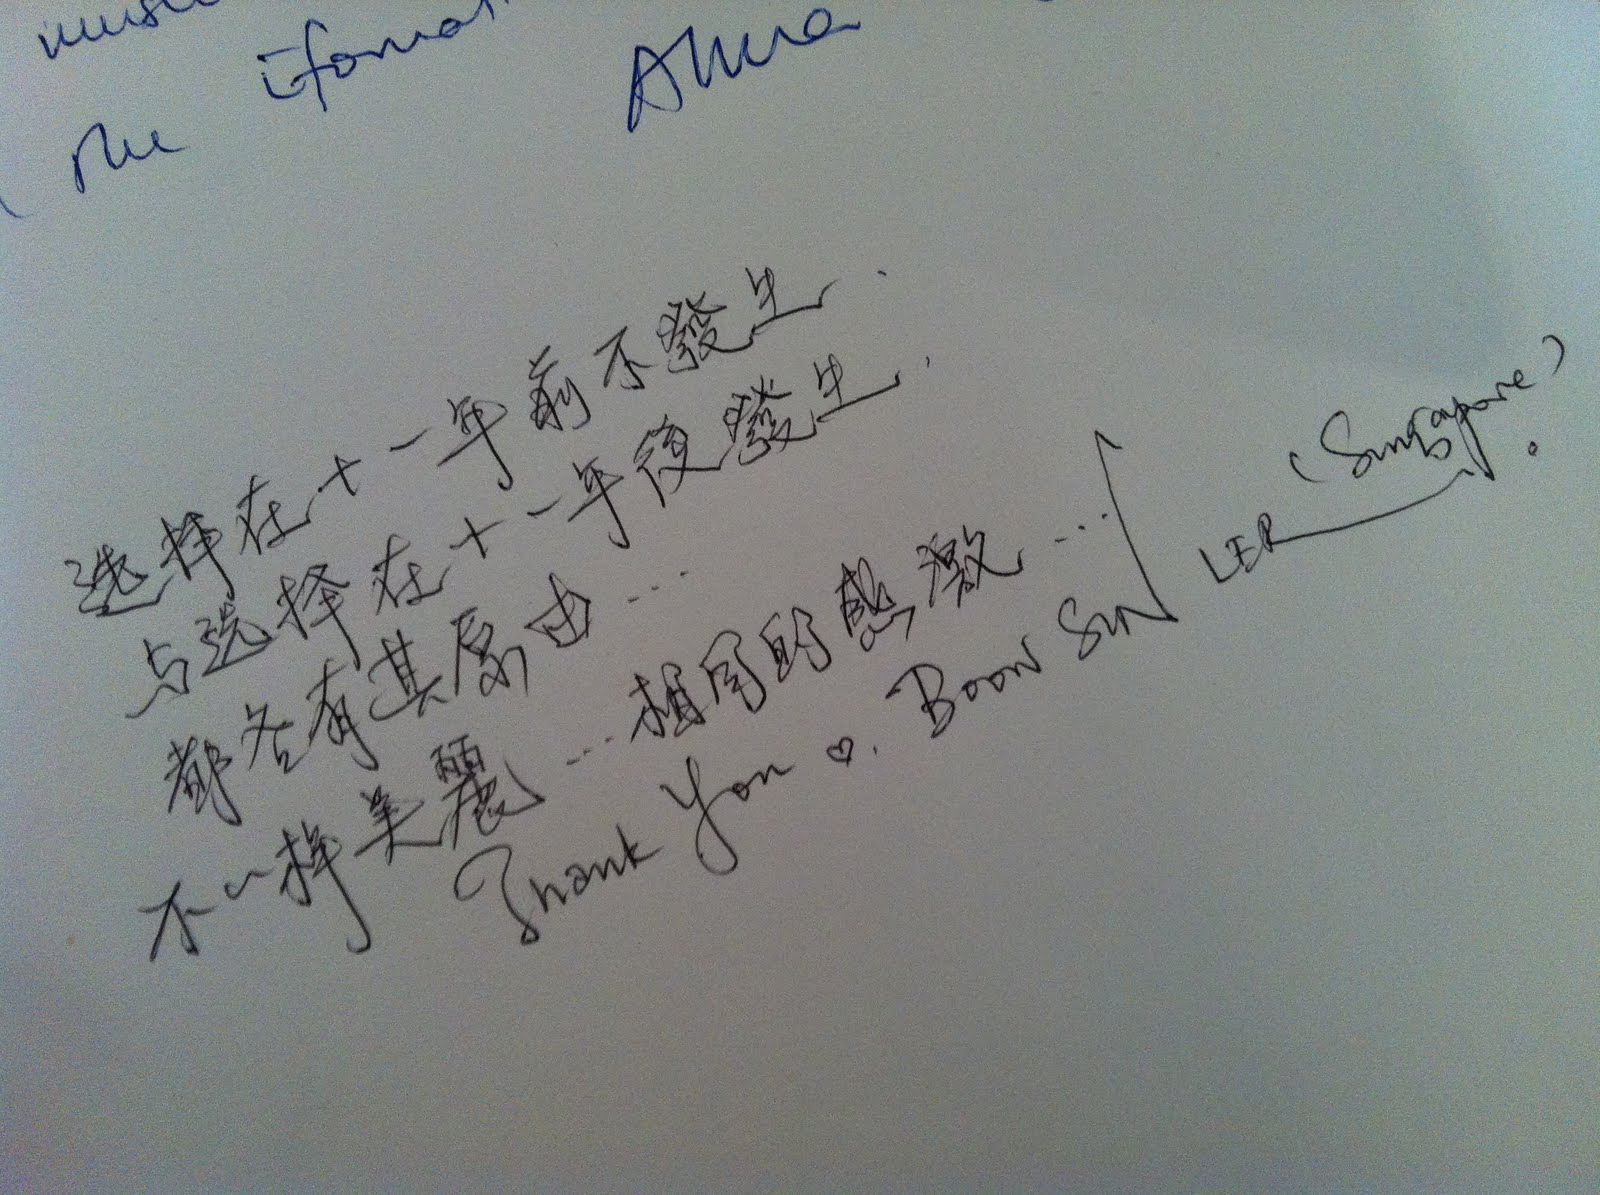 the iformat
Alma
选择在十一年前不發生..
与选择在十一年後發生.
都各有其原由...
不一样美麗...相同的感激...
Thank You ♡. Boon Sun LER (Singapore).